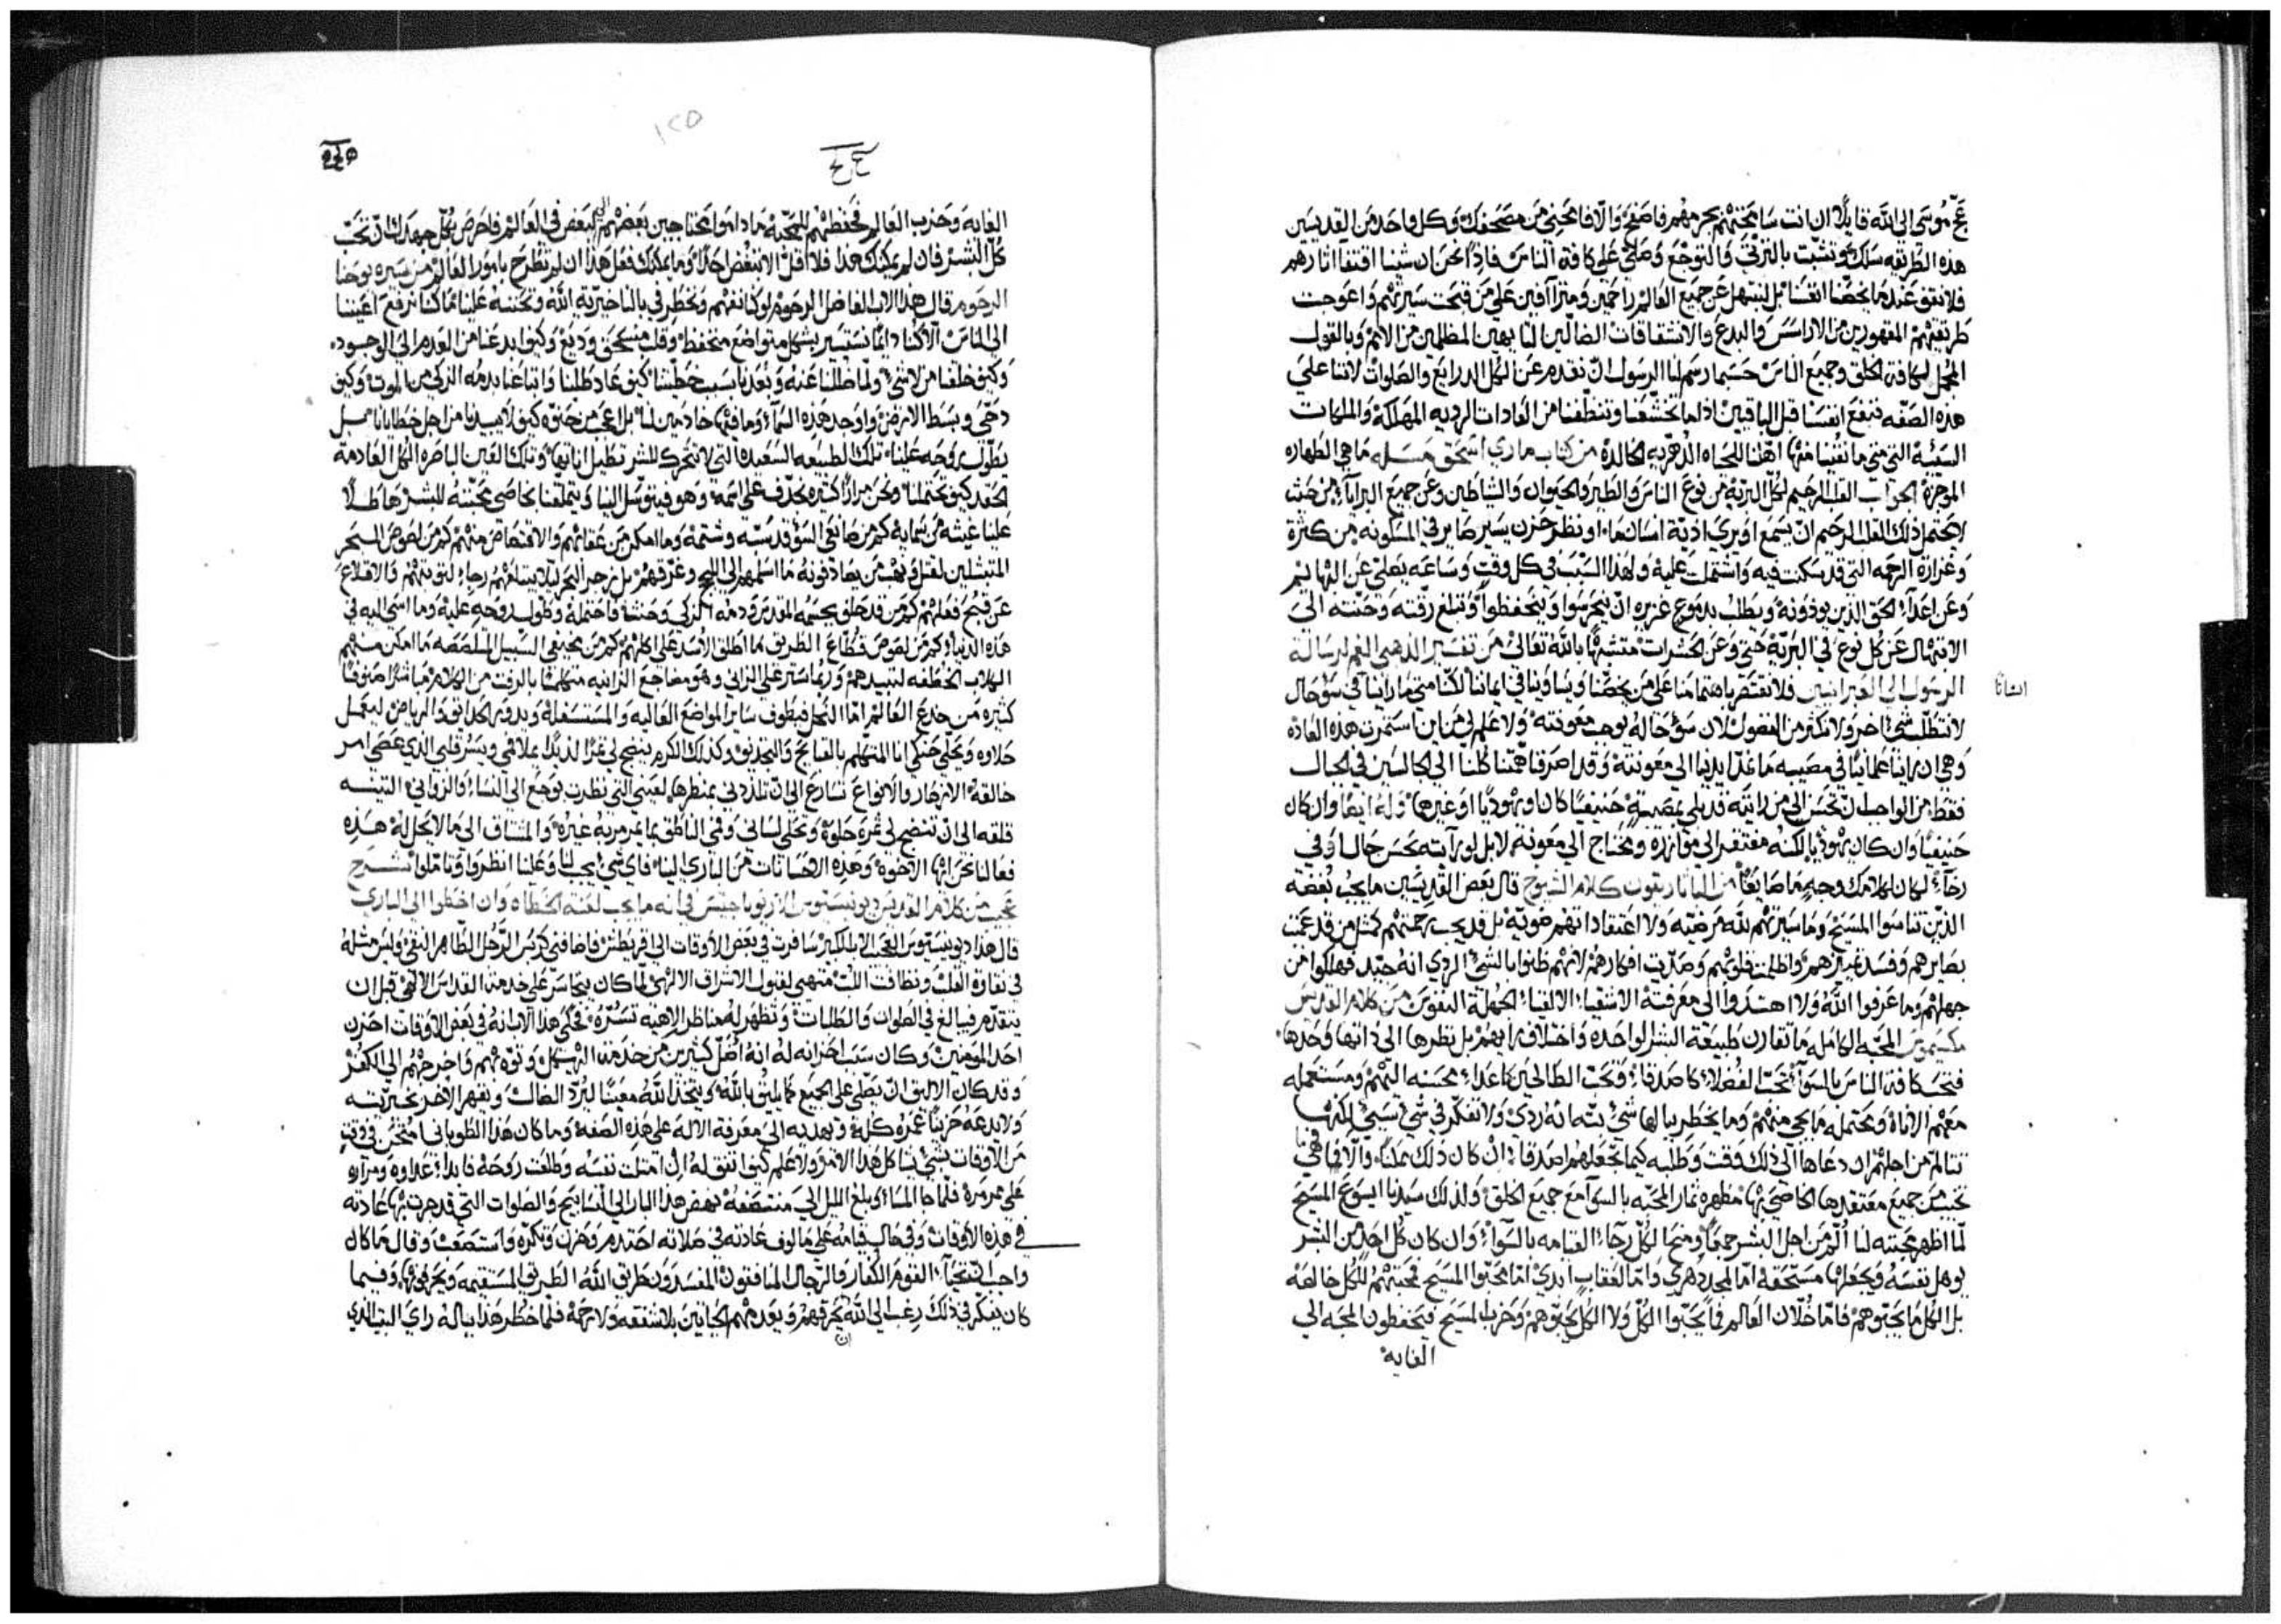 عج موسى الى الله قايلًا ان انت سامحتهم بجرمهم فاصفح والّا فامحيني من مصحفك وكل واحد من القديسين
هذه الطريقه سلك وتشبث بالترثي والتوجع وصلّى على كافة الناس فاذًا نحن ان شينا اقتفا اثارهم
فلا نقف عندما يخصّنا انفسنا بل نبتهل عن جميع العالم راحمين ومتراافين على من قبحت سيرتهم واعوجت
طريقتهم المقهورين من الاراسس والبدع والانشقاقات الضالّين التايهين المظلمين من الامم وبالقول
المجمل لكافة الخلق وجميع الناس حسبما رسم لنا الرسول ان نقدم عن الكل الدرايع والصلوات لاننا على
هذه الصفه ننفع انفسنا قبل الباقين اذا ما تخشّعنا وتنظّفنا من العادات الرديه المهلكة والملكات
السيّية التي متى ما نقينا منها اهّلنا للحياه الدهريه الخالدة من كتاب ماري اسحق مسله ما هي الطهاره
الموجزة الجواب القلب الرحيم لكل البريّه من نوع الناس والطير والحيوان والشياطين وعن جميع البرايا من حيث
لا يحتمل ذلك القلب المرحم ان يسمع او يرى اذيّة انسان ما او نظر حزن يسير صاير في المسكونه من كثرة
وغزارة الرحمه التي قد سكنت فيه واشتملت عليه ولهذا السبب في كل وقت وساعه يصلي عن البهايم
وعن اعداء الحق الذين يوذونه ويطلب بدموع غزيره ان يحرسوا ويتحفظوا وتبلغ رقّته وحنّته الى
الابتهال عن كل نوع في البريّة حتى وعن الحشرات متشبّهًا بالله تعالى من تفسير الذهبي الفم لرسالة
الرسول الى العبرانيين فلا نقتصر باهتمامنا على من يخصّنا ويساوينا في ايماننا لكنّا متى ما راينا في سوّ حال
انسانًا
لا نتطلّب شي اخر ولا نكثر من الفضول لان سوّ حاله يوجب معونته ولا علم لي من اين استمرت هذه العاده
وهي ان راينا علمانيًا في مصيبه ما نمدّ ايدينا الى معونته وقد اصرفنا همّتنا كلنا الى الجالسين في الجبال
فقط من الواجب ان نحسن الى من رايته قد بلي بمصيبة حنيفيًا كان او يهوديًا او غيرها وله ايضًا وان كان
حنيفيًا وان كان يهوديًا لكنه مفتقر الى موازرة ومحتاج الى معونة لا بل لو رايته بحسن حال وفي
رخآء لكان لكلامك وجه ما صايغًا من الباناريقون كلام الشيوخ قال بعض القديسين ما يجب بغضة
الذين تناسوا المسيح وما سيرتهم لله مرضيّه ولا اعتقاداتهم ضويّة بل قد يجب رحمتهم كمثل من قد عميت
بصايرهم وفسد تمييزهم واظلمت قلوبهم وصدّيت افكارهم لانهم ظنوا بالشي الردي انه جيّد فهلكوا من
جهلهم وما عرفوا الله ولا اهتدوا الى معرفته الاشقيا الاغبيا الجهلة النفوس من كلام القديس
مكسيموس المحبّه الكامله ما تقارن طبيعة البشر الواحده واختلاف رايهم بل نظرها الى ذاتها وحدها
فتحب كافة الناس بالسوآ تحبّ الفضلاء كاصدقاء وتحب الطالحين كاعداء محسنه اليهم ومستعمله
معهم الاناة ومحتمله ما يجي منهم وما يخطر ببالها شي بتّه انه ردي ولا تفكّر في شي سيّي لكنها
تتالم من اجلهم ان دعاها الى ذلك وقت وطلبه كيما تجعلهم اصدقا ان كان ذلك ممكنًا والّا فما هي
تخيّب من جميع معتقدها الخاصّي بها مظهرة ثمار المحبّه بالسوآ مع جميع الخلق ولذلك سيدنا ايسوع المسيح
لمّا اظهر محبّته لنا الم من اجل البشر جميعًا ومنحنا للكل رجآ القيامه بالسوآ وان كان كل احد من البشر
يوهل نفسه ويجعلها مستحقة امّا لمجد دهري وامّا لعقاب ابدي امّا محبّوا المسيح فمحبّتهم للكل خالصة
بل الكل ما يحبّوهم فامّا خلّان العالم فما يحبّوا الكل ولا الكل يحبّوهم وحزب المسيح فيحفظون المحبه الى
الغايه
١٢٥
الغايه وحزب العالم فحفظهم للمحبّة ما داموا محتاجين بعضهم الى بعض في العالم فاحرص بكل جهدك ان تحبّ
كل البشر فان لم يمكنك هذا فلا اقلّ الا تبغض احدًا وما يمكنك فعل هذا ان لم تطّرح بامور العالم من سيرة يوحنا
الرحوم قال هذا الاب الفاضل الرحوم لو كنا نفهم ونخطر في بالنا خيريّة الله ومحنّنه علينا لما كنا نرفع اعيننا
الى الناس الا كنا دايمًا نستسير بشكل متواضع متحفظ وقلب منسحق وديع وكيف ابدعنا من العدم الى الوجود
وكيف خلقنا من لا شي ولمّا ضللنا عنه وبعدنا بسبب خطيتنا كيف عاد طلبنا وابتاعنا بدمه الزكي من الموت وكيف
دحى وبسط الارض واوجد هذه السمآء وما فيها خادمين لنا بل اعجب من حنوّه كيف لا يبيدنا من اجل خطايانا بل
يطّول روحه علينا تلك الطبيعه السعيده التي لا تتحرك للشر تطيل اناتها وتلك العين الناضره الكل العادمة
الحقد كيف تحتملنا ونحن مرارًا كثيره نجدّف على اسمه وهو فيتوسّل الينا ويتملّقنا بخاصّي محبّته للبشر هاطلًا
علينا غيثه من سمايه كم من صانعي السوّ قد سبّه وشتمه وما امكن من عقابهم والاقتصاص منهم كم من لصوص البحر
المتبتّلين لقتل ونهب من يصادفونه ما اسلمهم الى اللجج وغرّقهم بل زجر البحر ليلا يبتلعهم رجاء لتوبتهم والاقلاع
عن قبح فعلهم كم من قد حلف بجسمه المقدس ودمه الزكي وحنث فاحتمله وطول روحه عليه وما اسى اليه في
هذه الدنيا وكم من لصوص قطّاع الطريق ما اطلق الاسد على اكلهم
كثيره من خدع العالم امّا النحل فيطوف ساير المواضع العاليه والمستسفلة ويدور الحدايق والرياض ليعمل
حلاوه ويحلّي حنكي انا المتكلم بالقبايح والتجديف وكذلك الكرم ينضج لي ثمرًا لذيذًا يملا فمي ويسرّ قلبي الذي عصى امر
خالقه الازهار والانواع تسارع الى ان تلذذني بمنظرها لعيني التي نظرت بوجع الى النساء والزواني التينه
قلقه الى ان تنضج لي ثمرة حلوة وتحلي لساني وفمي الناطق بما يمرمر به غيره والمشتاق الى ما لا يحل له هذه
فعالنا نحن ايها الاخوة وهذه الاحسانات من الباري الينا فاي شي يجب لنا وعلينا انظروا وتاملوا شرح
عجيب من كلام القديس ديونيسيوس الاريوباجيتس في انه ما يجب لعنة الخطاه وان اخطوا الى الباري
قال هذا ديونيسيوس العجيب الاب الكبير سافرت في بعض الاوقات الى قريطش فاضافني كربس الرجل الطاهر النقي وليس مثله
في نقاوة القلب ونظافة اللبّ متهيي لقبول الاشراف الالهي لمّا كان يتجاسر على خدمة القداس الالهي قبل ان
يتقدم فيبالغ في الصلوات والطلبات وتظهر له مناظر الاهيه تسرّه فحكى هذا الاب انه في بعض الاوقات احزن
احد المومنين وكان سبب احزانه له انه اضلّ كثيرين من خدمة الهيكل وتوّه بهم واخرجهم الى الكفر
وقد كان الاليق ان يصلّي على الجميع كما يليق بالله ويتّخذ الله معينًا ليردّ الضالّ ويقهر الاخر بخيريّته
ولا يدعه حزينًا عمره كله ويهديه الى معرفة الاله على هذه الصفة وما كان هذا الطوباني امتحن في وقت
من الاوقات بشي يشاكل هذا الامر ولا علم كيف اتفق له ان امتلت نفسه وطلعت روحه فايدًا عداوه ومراره
على مرمرة فلمّا جا المسا وبلغ الليل الى منتصفه نهض هذا البار الى التسابيح والصلوات التي قد جرت بها عادته
في هذه الاوقات وفي حال قيامه على مالوف عادته في صلاته احتدم وحزن وتكرّه واستصعب وقال ما كان
واجب ان تحيآ القوم الكفار والرجال المنافقون المفسدون طريق الله الطريق المستقيمه ويحرفوها وفيما
كان يفكّر في ذلك رغب الى الله ان يحرقهم ويعدمهم الحياتين بلا شفقه ولا رحمة فلمّا خطر هذا بباله راى البيت الذي